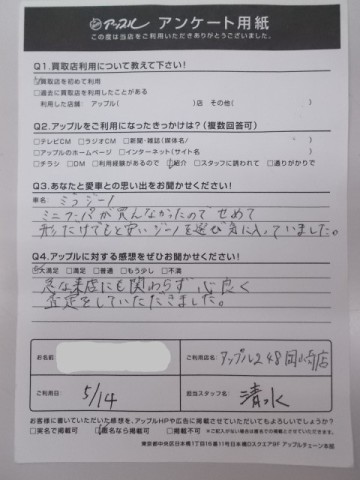 アップル アンケート用紙
この度は当店をご利用いただきありがとうございました。
Q1.買取店利用について教えて下さい!
☑買取店を初めて利用
□過去に買取店を利用したことがある
利用した店舗 アップル( )店 その他( )
Q2.アップルをご利用になったきっかけは?(複数回答可)
□テレビCM □ラジオCM □新聞・雑誌(媒体名/ )
□アップルのホームページ □インターネット(サイト名 )
□チラシ □DM □利用経験があるので ☑紹介 □スタッフに誘われて □通りがかりで
Q3.あなたと愛車との思い出をお聞かせください!
車名: ミラジーノ
ミニクーパが買えなかったので せめて
形だけでもと思いジーノを選び気に入っていました。
Q4.アップルに対する感想をぜひお聞かせください!
☑大満足 □満足 □普通 □もう少し □不満
急な来店にも関わらず 心良く
査定をしていただきました。
お名前:
ご利用店名: アップル248岡崎店
ご利用日: 5/14
担当スタッフ名: 清水
お客様に書いていただいた感想を、アップルHPや広告に掲載させていただいてもよろしいでしょうか?
□実名で掲載可 ☑匿名なら掲載可 □掲載不可 ※ご記入がない場合は匿名での掲載とさせていただきます。
東京都中央区日本橋1丁目16番11号日本橋Dスクエア8F アップルチェーン本部